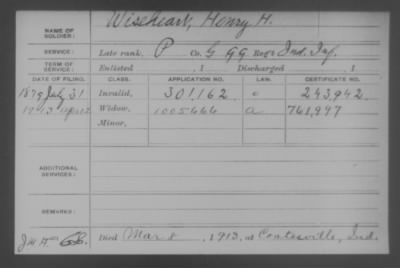 NAME OF SOLDIER: Wiseheart, Henry H.
SERVICE: Late rank, P Co. G 99 Reg't Ind. Inf.
TERM OF SERVICE: Enlisted , 1 Discharged , 1
DATE OF FILING. CLASS. APPLICATION NO. LAW. CERTIFICATE NO.
1879 July 31 Invalid, 301,162 c 243,942
1913 Widow, 1005664 a 761,997
Minor,
ADDITIONAL SERVICES:
REMARKS:
Died Mar 8, 1913, at Coatesville, Ind.